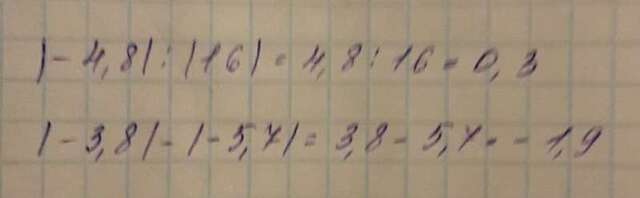 |-4,8| : |16| = 4,8 : 16 = 0,3
|-3,8| - |-5,7| = 3,8 - 5,7 = -1,9